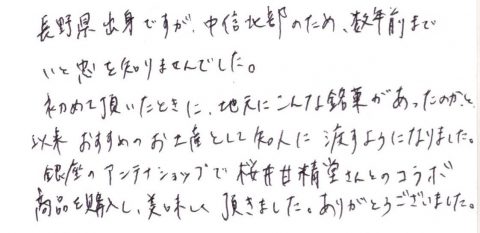 長野県出身ですが、中信北部のため、数年前まで
いと忠を知りませんでした。
初めて頂いたときに、地元にこんな銘菓があったのかと
以来おすすめのお土産として知人に渡すようになりました。
銀座のアンテナショップで桜井甘精堂さんとのコラボ
商品を購入し、美味しく頂きました。ありがとうございました。